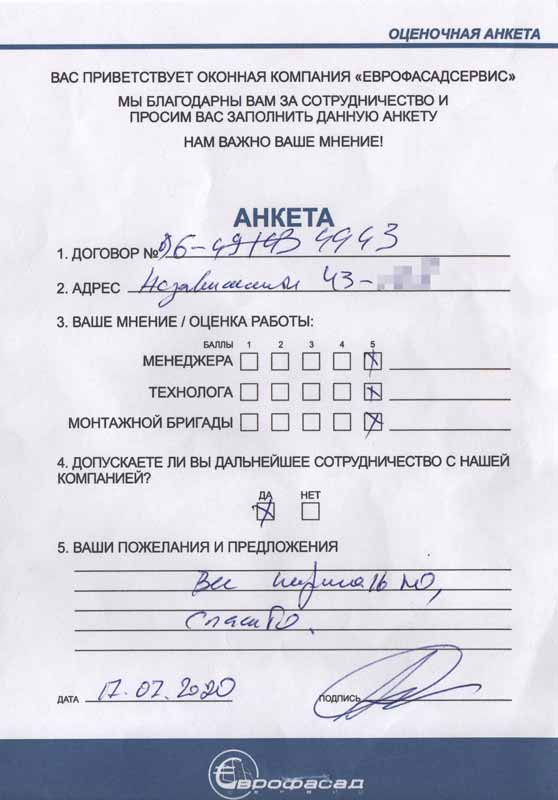 ОЦЕНОЧНАЯ АНКЕТА
ВАС ПРИВЕТСТВУЕТ ОКОННАЯ КОМПАНИЯ «ЕВРОФАСАДСЕРВИС»
МЫ БЛАГОДАРНЫ ВАМ ЗА СОТРУДНИЧЕСТВО И
ПРОСИМ ВАС ЗАПОЛНИТЬ ДАННУЮ АНКЕТУ
НАМ ВАЖНО ВАШЕ МНЕНИЕ!
АНКЕТА
1. ДОГОВОР № 4943
2. АДРЕС Независимости 43-
3. ВАШЕ МНЕНИЕ / ОЦЕНКА РАБОТЫ:
БАЛЛЫ 1 2 3 4 5
МЕНЕДЖЕРА
ТЕХНОЛОГА
МОНТАЖНОЙ БРИГАДЫ
4. ДОПУСКАЕТЕ ЛИ ВЫ ДАЛЬНЕЙШЕЕ СОТРУДНИЧЕСТВО С НАШЕЙ
КОМПАНИЕЙ?
ДА НЕТ
5. ВАШИ ПОЖЕЛАНИЯ И ПРЕДЛОЖЕНИЯ
Все нормально,
Спасибо.
ДАТА 17.02.2020 ПОДПИСЬ
Еврофасад